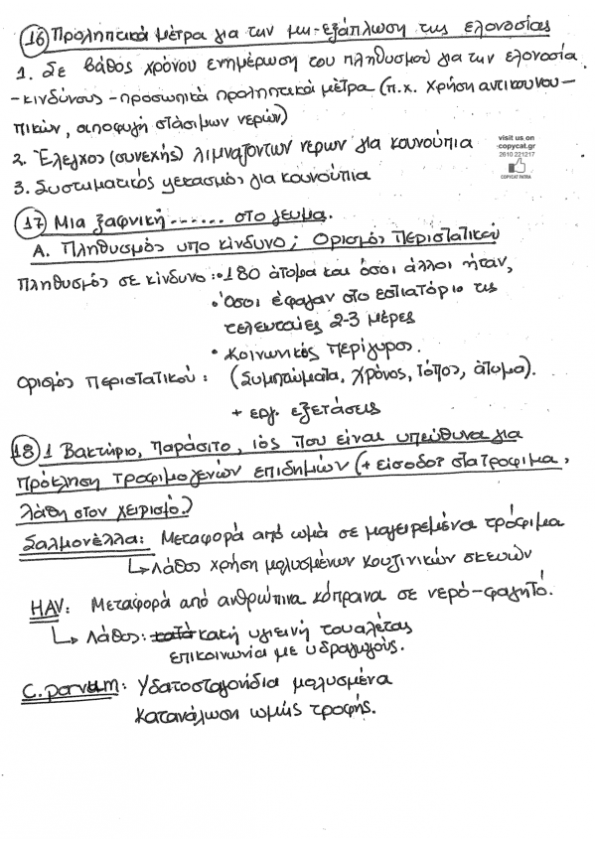 16 Προληπτικά μέτρα για την μη-εξάπλωση της ελονοσίας
1. Σε βάθος χρόνου ενημέρωση του πληθυσμού για την ελονοσία
-κινδύνους -προσωπικά προληπτικά μέτρα (π.χ. χρήση αντικουνου-
πικών, αποφυγή στάσιμων νερών)
2. Έλεγχος (συνεχής) λιμναζοντων νερων για κουνούπια
visit us on
copycat.gr
2610 221217
COPYCAT PATRA
3. Συστηματικός ψεκασμός για κουνούπια
17 Μια ξαφνική ....... στο γευμα.
Α. Πληθυσμός υπο κίνδυνο; Ορισμός περιστατικού
Πληθυσμός σε κίνδυνο: •180 άτομα και όσοι άλλοι ήταν,
• Όσοι έφαγαν στο εστιατόριο τις
τελευταίες 2-3 μέρες
• Κοινωνικός περίγυρος.
Ορισμός περιστατικού: (Συμπτώματα, χρόνος, τόπος, άτομο).
+ εργ. εξετάσεις
18 1 Βακτήριο, παράσιτο, ιός που είναι υπεύθυνα για
πρόκληση τροφιμογενών επιδημιών (+ είσοδο? στα τροφιμα,
λάθη στον χειρισμό)
Σαλμονέλλα: Μεταφορά από ωμά σε μαγειρεμένα τρόφιμα
↳ Λάθος χρήση μολυσμένων κουζινικών σκευών
HAV: Μεταφορά από ανθρώπινα κόπρανα σε νερό-φαγητό.
↳ Λάθος: κακή υγιεινή τουαλέτας
επικοινωνία με υδραγωγούς.
C. parvum: Υδατοσταγονίδια μολυσμένα
κατανάλωση ωμής τροφής.